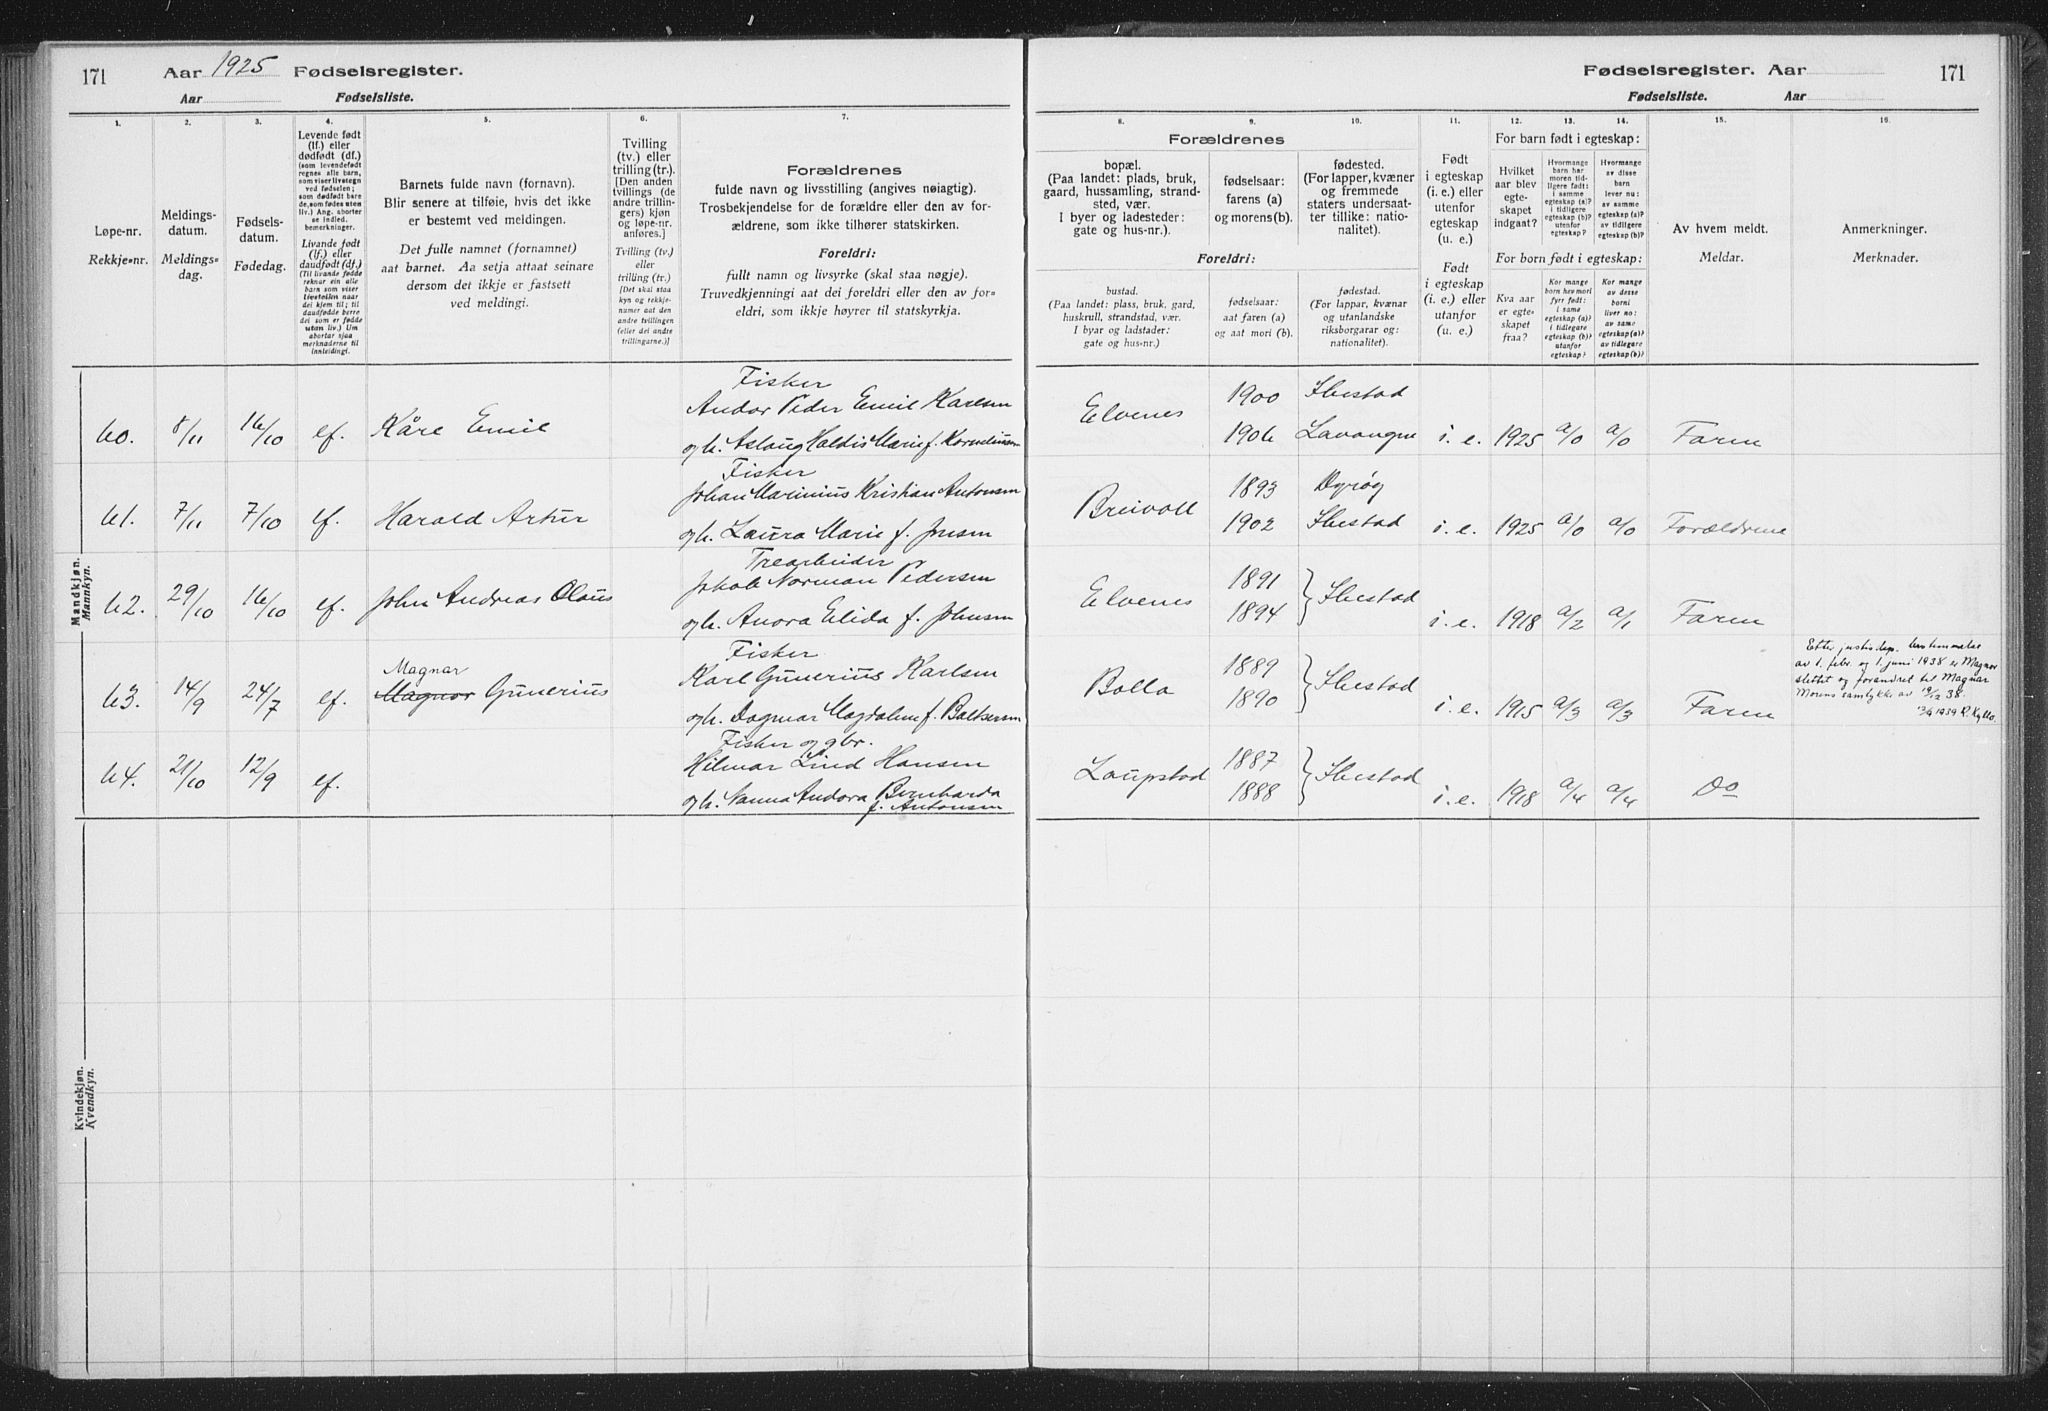 171 Aar 1925 Fødselsregister.
Aar Fødselsliste.
Fødselsregister. Aar 171
Fødselsliste. Aar
1. 2. 3. 4. 5. 6. 7.
Løpe-nr.
Rekkje-nr.
Meldings-
datum.
Meldings-
dag.
Fødsels-
datum.
Fødedag.
Levende født
(lf.) eller
dødfødt (df.)
(som levendefødt
regnes alle barn,
som viser livstegn
ved fødselen;
som dødfødt bare
de, som fødes uten
liv.) Ang. aborter
se indled.
bemerkninger.
Livande født
(lf.) eller
daudfødt (df.)
(Til livande fødde
reknar ein alle
barn som viser
livsteikn naar
dei kjem til; til
daudfødde berre
dei som er fødde
utan liv.) Um
abortar sjaa
merknaderne til
innleidingi.
Barnets fulde navn (fornavn).
Blir senere at tilføie, hvis det ikke
er bestemt ved meldingen.
Det fulle namnet (fornamnet)
aat barnet. Aa setja attaat seinare
dersom det ikkje er fastsett
ved meldingi.
Tvilling
(tv.) eller
trilling (tr.).
[Den anden
tvillings (de
andre trillin-
gers) kjøn
og løpe-nr.
anføres.]
Tvilling (tv.)
eller
trilling (tr.)
[Det skal staa
kyn og rekkje-
numer aat den
andre tvillingen
(eller dei andre
trillingarne.)]
Forældrenes
fulde navn og livsstilling (angives nøiagtig).
Trosbekjendelse for de forældre eller den av for-
ældrene, som ikke tilhører statskirken.
Foreldri:
fullt namn og livsyrke (skal staa nøgje).
Truvedkjenningi aat dei foreldri eller den av for-
eldri, som ikkje høyrer til statskyrkja.
8. 9. 10. 11. 12. 13. 14. 15. 16.
Forældrenes
bopæl.
(Paa landet: plads, bruk,
gaard, hussamling, strand-
sted, vær.
I byer og ladesteder:
gate og hus-nr.).
fødselsaar:
farens (a)
og morens (b).
fødested.
(For lapper, kvæner
og fremmede
staters undersaat-
ter tillike: natio-
nalitet).
Foreldri:
bustad.
(Paa landet: plass, bruk, gard,
huskrull, strandstad, vær.
I byar og ladstader:
gate og hus-nr.)
fødselsaar:
aat faren (a)
og aat mori (b).
fødestad.
(For lappar, kvænar
og utanlandske
riksborgarar og:
nationalitet).
Født
i egteskap
(i. e.) eller
utenfor
egteskap
(u. e.)
Født
i egteskap
(i. e.) eller
utanfor
(u. e.)
For barn født i egteskap:
Hvilket
aar blev
egte-
skapet
indgaat?
Hvormange
barn har
moren tid-
ligere født:
i samme
egteskap (a)?
i tidligere
egteskap (b)?
utenfor
egteskap?
Hvormange
av disse
barn
lever nu:
av samme
egteskap (a)?
av tidligere
egteskap (b)?
For born født i egteskap:
Kva aar
er egte-
skapet
fraa?
Kor mange
born hev mori
fyrr født:
i same
egteskap (a)?
i tidlegare
egteskap (b)?
utanfor
egteskap?
Kor mange
av desse
borni
liver no:
av same
egteskap (a)?
av tidlegare
egteskap (b)?
Av hvem meldt.
Meldar.
Anmerkninger.
Merknader.
Mandkjøn.
Mannkyn.
Fisker
60. 8/11 16/10 lf. Kåre Emil Andor Peder Emil Karlsen
og h. Aslaug Haldis Marie f. Korneliussen
Elvenes 1900 Ibestad
1906 Lavangen i. e. 1925 a/0 a/0 Faren
Fisker
61. 7/11 7/10 lf. Harald Artur Johan Marinius Kristian Antonsen
og h. Laura Marie f. Jensen
Breivoll 1893 Dyrøy
1902 Ibestad i. e. 1925 a/0 a/0 Forældrene
Trearbeider
62. 29/10 16/10 lf. John Andreas Olaus Jakob Norman Pedersen
og h. Anora Elida f. Johnsen
Elvenes 1891
1894 } Ibestad i. e. 1918 a/2 a/1 Faren
Fisker
63. 14/9 24/7 lf. Magnar
Magnor Gunerius Karl Gunerius Karlsen
og h. Dagmar Magdalene f. Baltsersen
Bolla 1889
1890 } Ibestad i. e. 1915 a/3 a/3 Faren
Etter justisdep. bestemmelse
av 1. febr. og 1. juni 1938 er Magnor
slettet og forandret til Magnar
Morens samtykke av 19/12 38.
1939 R. Kyllo.
Fisker og gbr.
64. 21/10 12/9 lf. Hilmar Lind Hansen
og h. Nanna Andora Bernharda
f. Antonsen
Laupstad 1887
1888 } Ibestad i. e. 1918 a/4 a/4 Do
Kvindekjøn.
Kvendkyn.